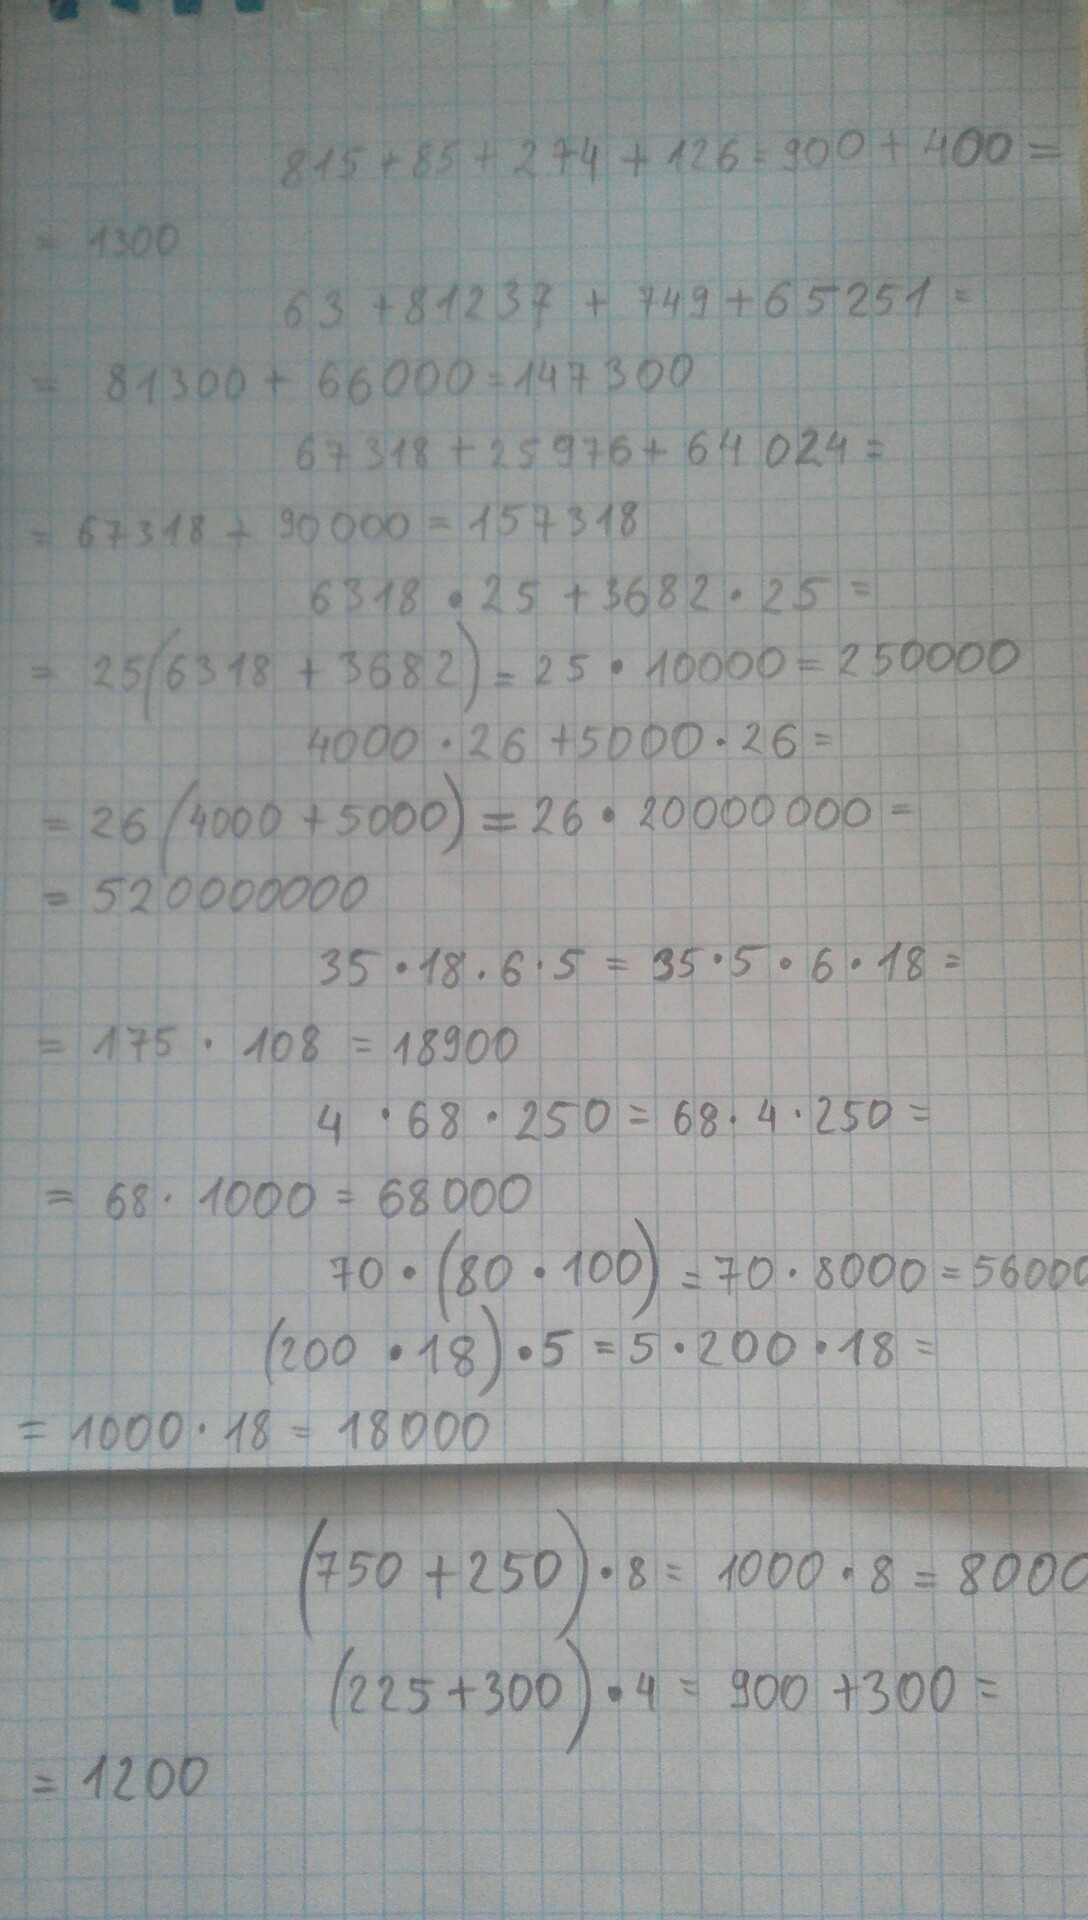 815 + 85 + 274 + 126 = 900 + 400 =
= 1300
63 + 81237 + 749 + 65251 =
= 81300 + 66000 = 147300
67318 + 25976 + 64 024 =
= 67318 + 90000 = 157318
6318 · 25 + 3682 · 25 =
= 25(6318 + 3682) = 25 · 10000 = 250000
4000 · 26 + 5000 · 26 =
= 26 (4000 + 5000) = 26 · 20000000 =
= 520000000
35 · 18 . 6 · 5 = 35 · 5 · 6 · 18 =
= 175 · 108 = 18900
4 · 68 · 250 = 68 · 4 · 250 =
= 68 · 1000 = 68000
70 · (80 · 100) = 70 · 8000 = 56000
(200 · 18) · 5 = 5 · 200 · 18 =
= 1000 · 18 = 18000
(750 + 250) · 8 = 1000 · 8 = 8000
(225 + 300) · 4 = 900 + 300 =
= 1200